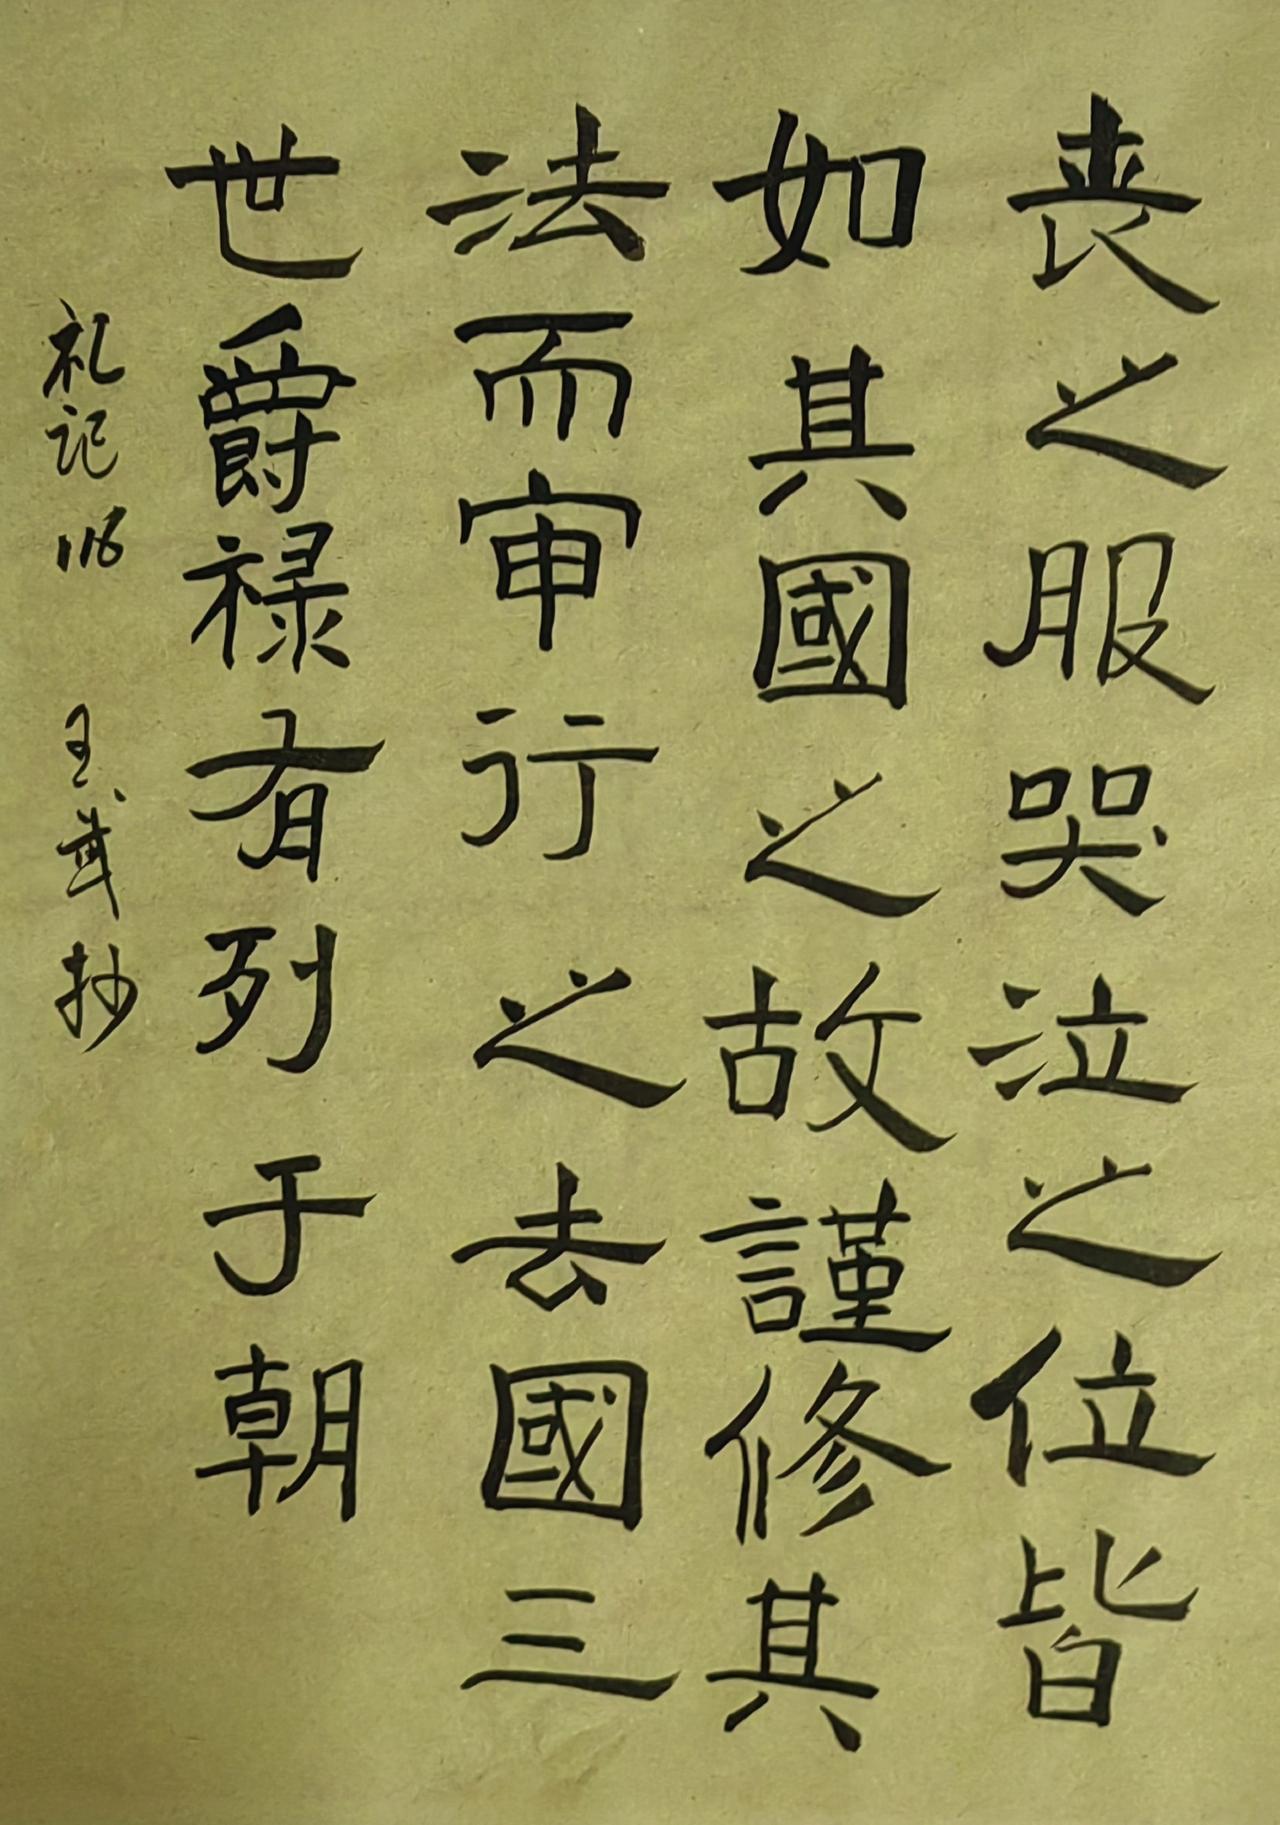 丧之服哭泣之位皆
如其國之故謹修其
法而审行之去國三
世爵禄有列于朝
礼记 116 王 抄